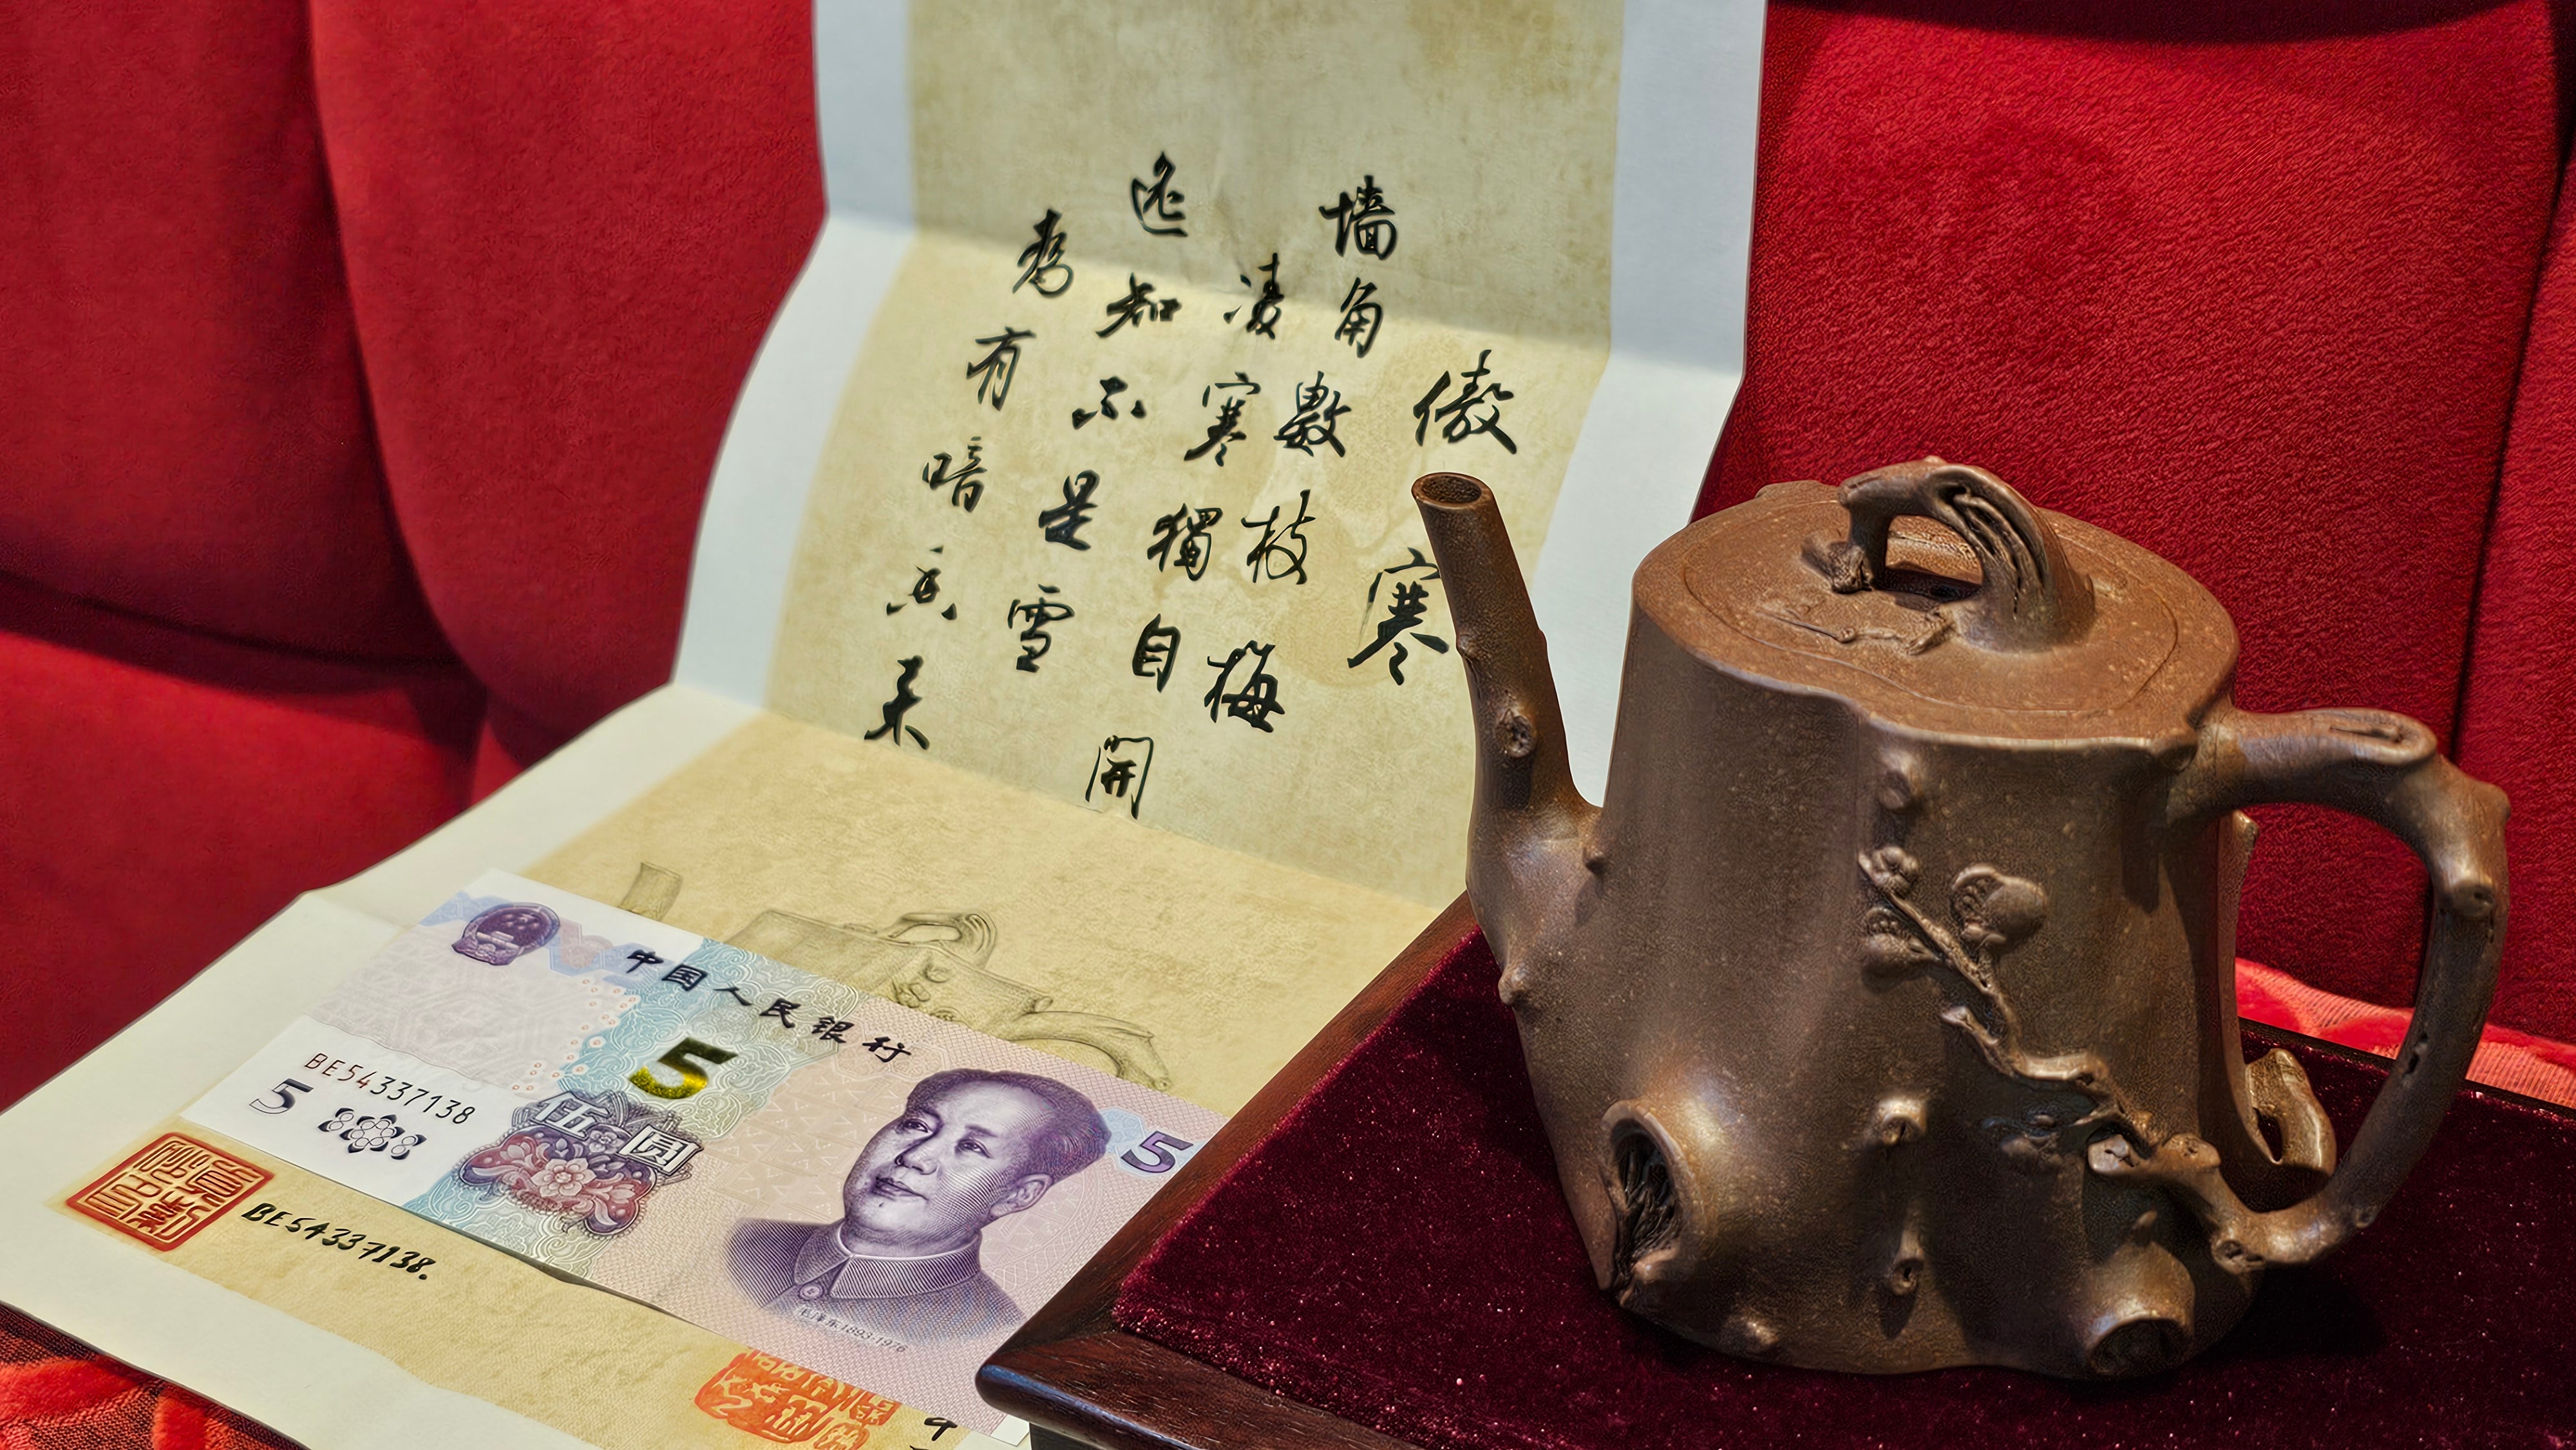 傲寒
墙角數枝梅
凌寒獨自開
遥知不是雪
為有暗香来
中国人民银行
5
BE54337138
5
伍圆
5
毛泽东1893-1976
BE54337138.
中